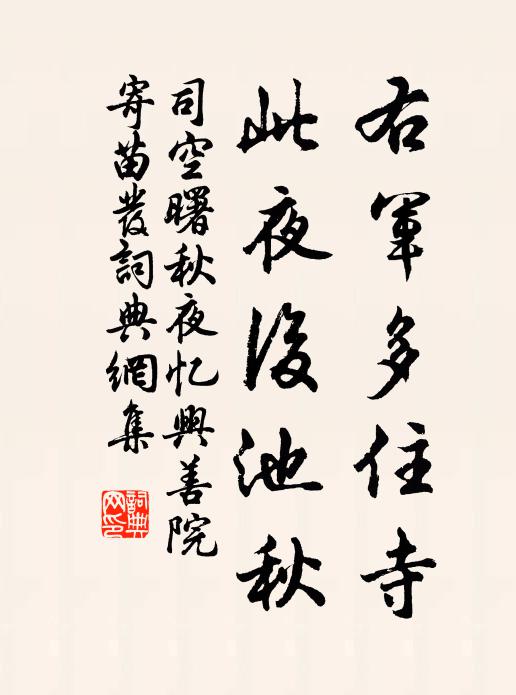 右軍多住寺
此夜後池秋
司空曙秋夜忆興善院
寄苗發詞典網集
詞典網印